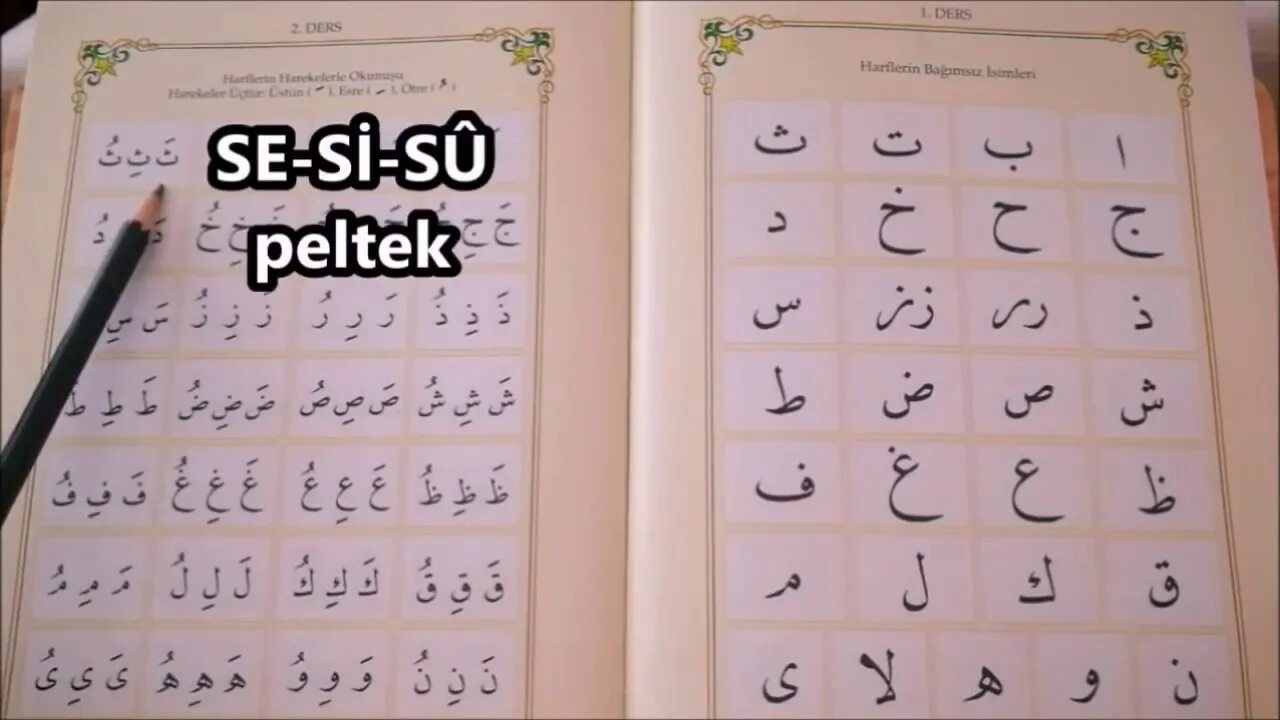 1. DERS
Harflerin Bağımsız İsimleri
ا ب ت ث
ج ح خ د
ذ رر زز س
ش ص ض ط
ظ ع غ ف
ق ك ل م
ن و ه لا ى
2. DERS
Harflerin Harekelerle Okunuşu
Harekeler Üçtür: Üstün ( َ ), Esre ( ِ ), Ötre ( ُ )
SE-Sİ-SÛ
peltek
ثَ ثِ ثُ
جَ جِ خَ خِ خُ دَ دُ
ذَ ذِ ذُ رَ رِ رُ زَ زِ زُ سَ سِ
شَ شِ شُ صَ صِ صُ ضَ ضِ ضُ طَ طِ طُ
ظَ ظِ ظُ عَ عِ عُ غَ غِ غُ فَ فِ فُ
قَ قِ قُ كَ كِ كُ لَ لِ لُ مَ مِ مُ
نَ نِ نُ وَ وِ وُ هَ هِ هُ ىَ ىِ ىُ